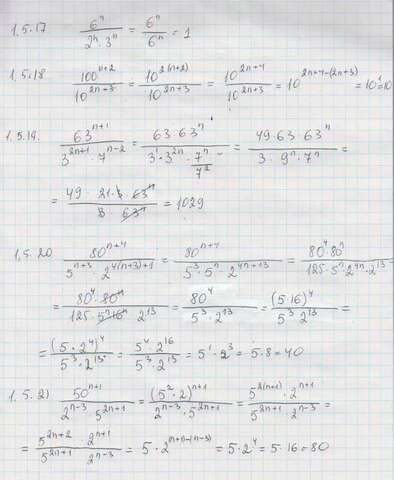 1.5.17 6^n / (2^n · 3^n) = 6^n / 6^n = 1
1.5.18. 100^(n+2) / 10^(2n+3) = 10^(2(n+2)) / 10^(2n+3) = 10^(2n+4) / 10^(2n+3) = 10^(2n+4-(2n+3)) = 10^1 = 10
1.5.19. 63^(n+1) / (3^(2n+1) · 7^(n-2)) = 63 · 63^n / (3^1 · 3^(2n) · 7^n / 7^2) = 49 · 63 · 63^n / (3 · 9^n · 7^n) =
= 49 · 21 · 3 · 63^n / (3 · 63^n) = 1029
1.5.20 80^(n+4) / (5^(n+3) · 2^(4(n+3)+1)) = 80^(n+4) / (5^3 · 5^n · 2^(4n+13)) = 80^4 · 80^n / (125 · 5^n · 2^(4n) · 2^13) =
= 80^4 · 80^n / (125 · 5^n 16^n · 2^13) = 80^4 / (5^3 · 2^13) = (5·16)^4 / (5^3 · 2^13) =
= (5 · 2^4)^4 / (5^3 · 2^13) = 5^4 · 2^16 / (5^3 · 2^13) = 5^1 · 2^3 = 5·8 = 40
1.5.21 50^(n+1) / (2^(n-3) · 5^(2n+1)) = (5^2 · 2)^(n+1) / (2^(n-3) · 5^(2n+1)) = 5^(2(n+1)) · 2^(n+1) / (5^(2n+1) · 2^(n-3)) =
= 5^(2n+2) 2^(n+1) / (5^(2n+1) 2^(n-3)) = 5 · 2^(n+1-(n-3)) = 5·2^4 = 5·16 = 80